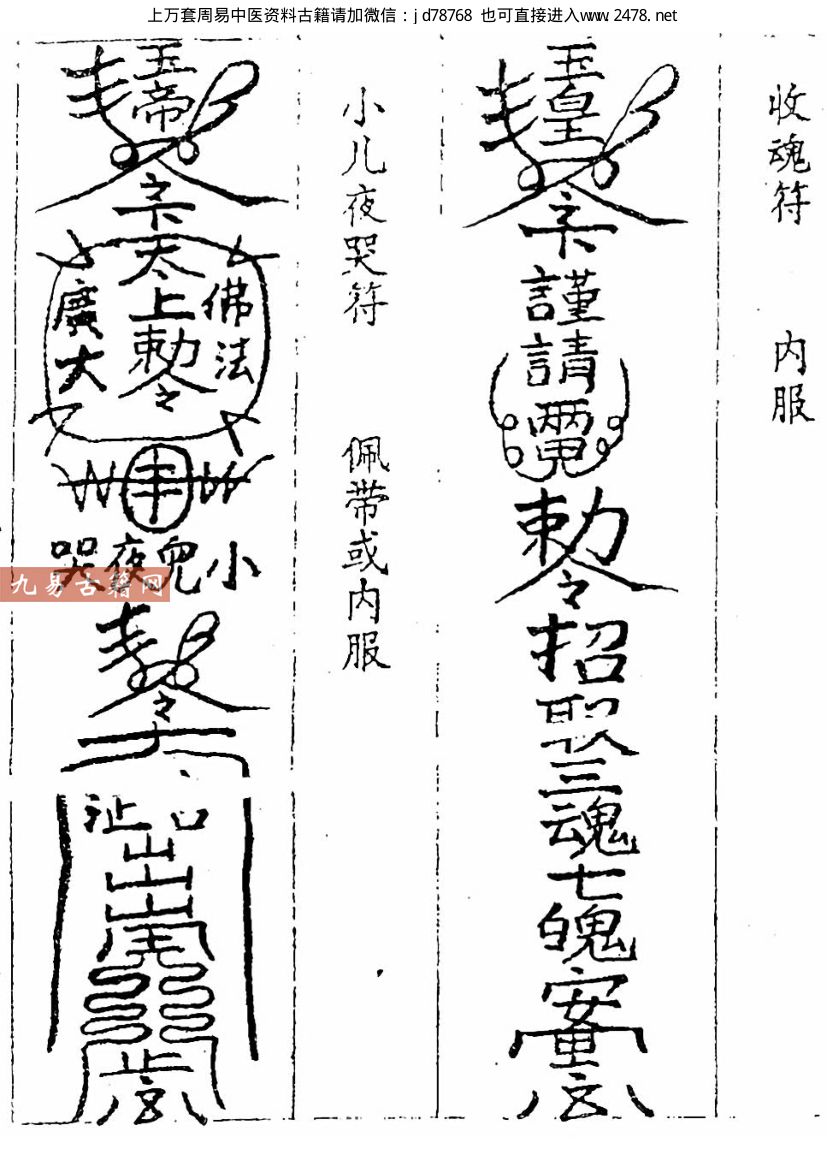 上万套周易中医资料古籍请加微信：jd78768 也可直接进入www.2478.net
收魂符 内服
玉皇
謹請
勅令
招取三魂七魄安
小儿夜哭符 佩带或内服
玉帝
太上勅令
佛法
廣大
小兒夜哭
九易古籍网